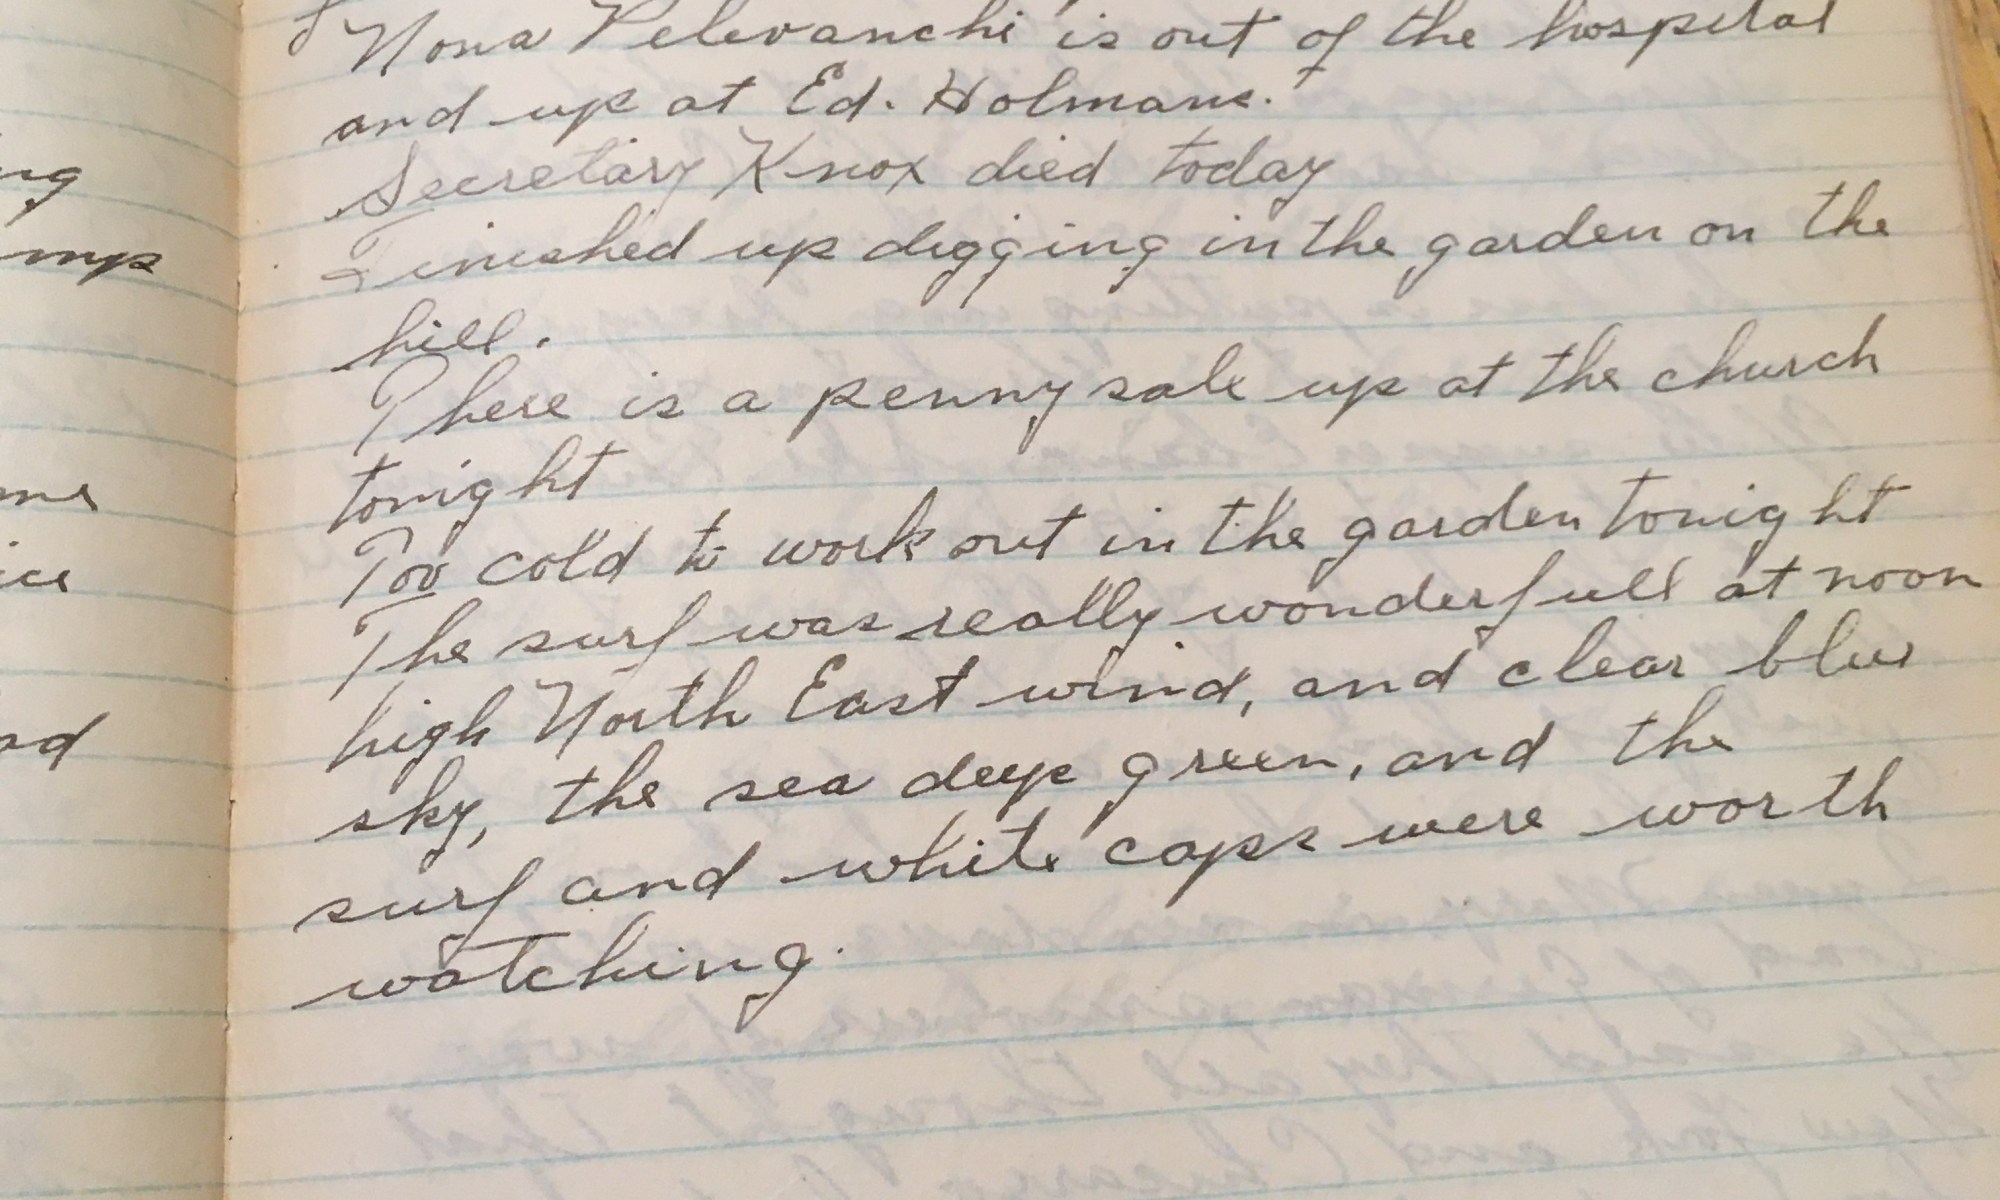 Nona Pelevanchi is out of the hospital
and up at Ed. Holmans.
Secretary Knox died today
Finished up digging in the garden on the
hill.
There is a penny sale up at the church
tonight
Too cold to work out in the garden tonight
The surf was really wonderfull at noon
high North East wind, and clear blue
sky, the sea deep green, and the
surf and white caps were worth
watching.
ng
me
ice